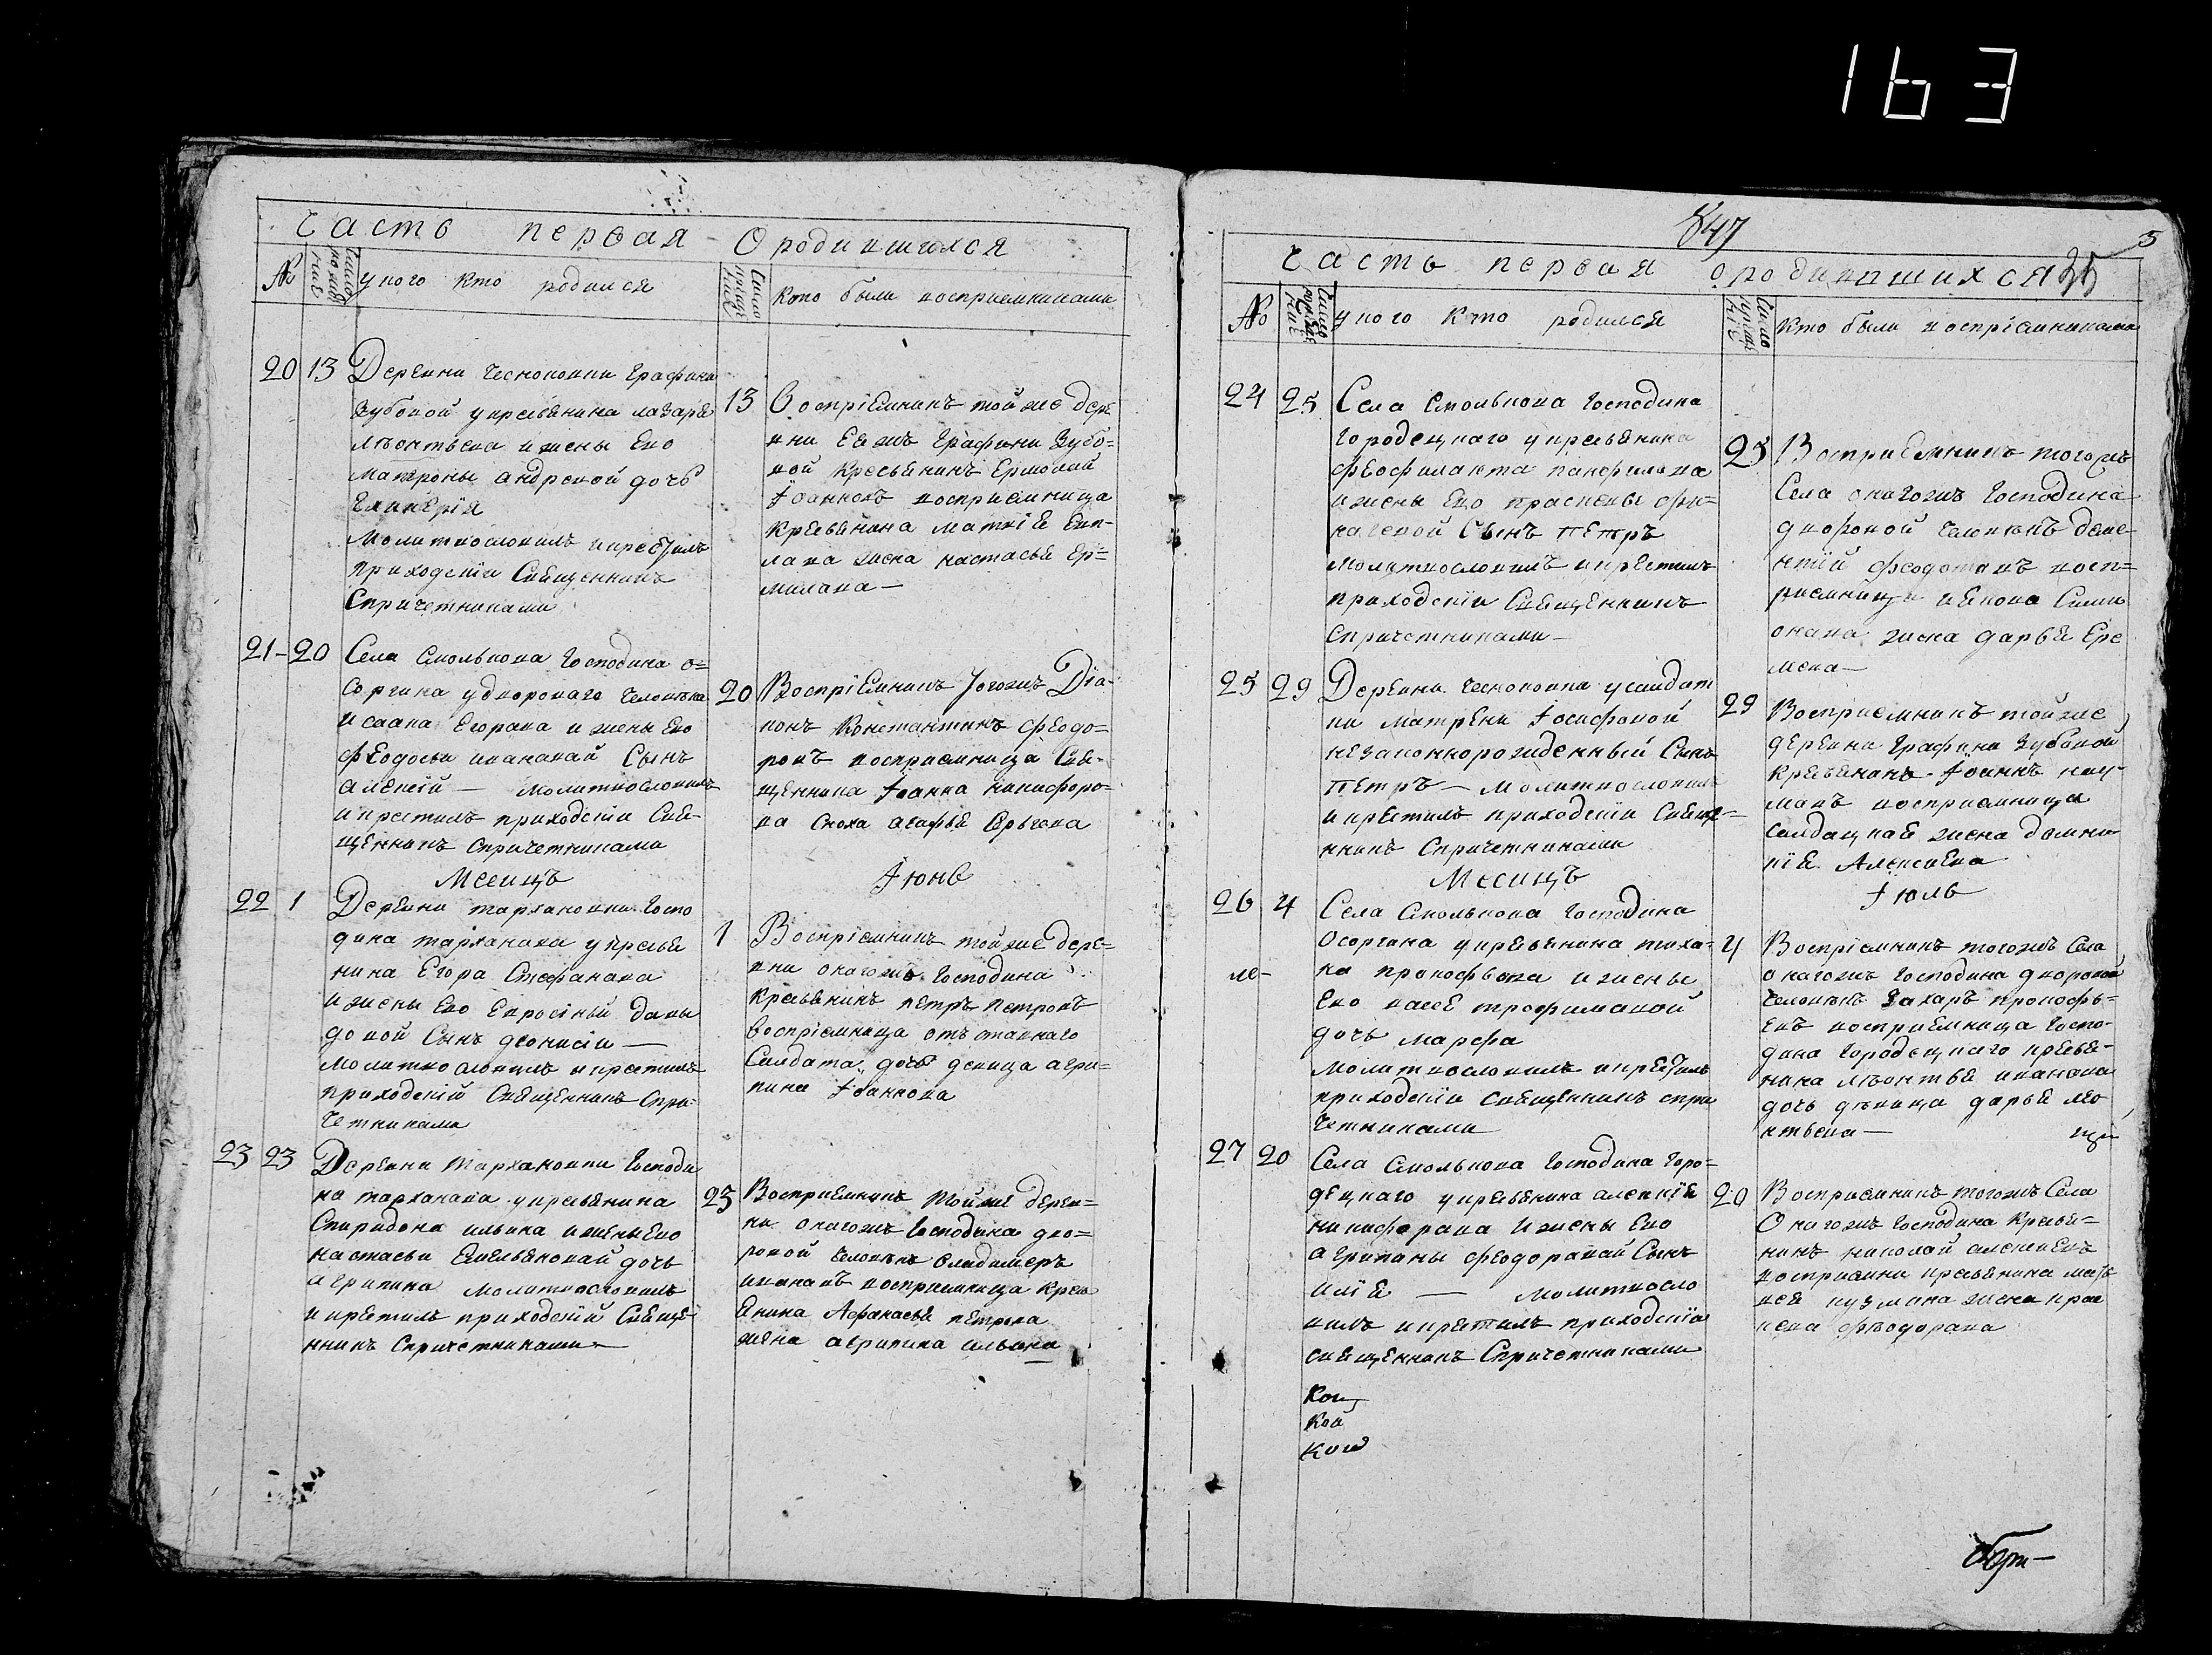 163
Часть первая О родившихся
№
Число рождение
у кого кто родился
Число крещение
кто были восприемниками
20 13 Деревни Чесноковки Графини
Зубовой у кресьянина лазаря
лѣонтьева и жены Ево
матроны андревой дочь
Гликерїя
Молитвословилъ и крестилъ
приходскїи Священникъ
Спричетниками
13 Воспрїемникъ той же дере
вни Еяжъ Графини Зубо=
вой кресьянинъ Ермолай
Iоанновъ восприемница
кресьянина матвїя
жена настасья Ер=
милава —
21 - 20 Села Смолькова Господина о=
соргина у двороваго человѣка
исаака Егорава и жены Ево
фѣодосьи иванавай Сынъ
алеѯїй — молитвословилъ
и крестилъ приходскїи Свя-
щенникъ Спричетниками
20 Воспрїемникъ тогожъ Дїа-
конъ Констаптинъ Феодо=
ровъ восприемница Свя-
щенника Iоанна никифоро-
ва Сноха агафья
Месицъ Iюнь
22 1 Деревни тархановки Госпо
дина тарханава у кресья
нина Егора Стефанава
и жены Ево Евросіньи Давы
довой Сынъ деонисіи —
молитвословилъ и крестилъ
приходскїй Священникъ Спри-
четниками
1 Воспрїемникъ той же дере=
вни онагожъ Господина
кресьянинъ петръ петровъ
воспрїемница отъставнаго
Салдата дочь девица агри=
пина Iоаннова
23 23 Деревни тархановки Господи
на тарханава у кресьянина
Спиридона ильина и жены Ево
настасьи Емельяновай дочь
агрипина молитвословилъ
и крѣстилъ приходскїй Свяще
нникъ Спричетниками —
23 Восприемникъ той же дерев=
ни онагожъ Господина дво=
ровой человѣкъ Владимеръ
ивановъ восприемница кресь
янина Афанасья петрова
жена агрипина ильина
847
5
Часть первая о родившихся 35
№
Число рождение
у кого кто родился
Число крещение
кто были воспрїемниками
24 25 Села Смолькова Господина
Городецкаго у кресьянина
феофилакта панфилава
и жены Ево прасковьи фи=
Сынъ пётръ
молитвословилъ и крестилъ
приходскїи Священникъ
Спричетниками —
25 Восприемникъ тогожъ
Села онагожъ Господина
дворовой человѣкъ деме
нтїй феодотавъ восп=
риемница иякова Сими
онава жена дарья Ере
меева —
25 29 Деревни Чесноковки у салдат
ки матрены Iосифовой
незаконнорожденный Сынъ
пётръ — молитвословилъ
и крестилъ приходскїи Свяще=
нникъ Спричетниками
29 Восприемникъ той же
деревни Графини Зубовой
кресьянинъ Iоаннъ нау-
мавъ восприемница
салдацкая жена домни
кїя Алексиева
Месицъ Iюль
26 4 Села Смолькова Господина
Осоргина у кресьянина тиха-
на прокофьева и жены
Ево вассе трофимавой
дочь марфа
Молитвословилъ и крестилъ
приходскїи Священникъ спри
четниками
4 Воспрїемникъ тогожъ Села
онагожъ Господина дворовой
человѣкъ Захаръ прокофь-
евъ восприемница Госпо-
дина Городецкаго кресья-
нина лѣонтья иванава
дочь дѣвица дарья лео
нтьева —
27 20 Села Смолькова Господина Горо=
децкаго у кресьянина алеѯїя
никифорава и жены Ево
агрипины феодоравай Сынъ
илїя — молитвосло
вилъ и крестилъ приходскїи
священникъ Спричетниками
20 Восприемникъ тогожъ Села
Онагожъ Господина кресья=
нинъ николай алеѯиевъ
восприемни кресьянина мать
вея кузмина жена прас
кева фѣодорава